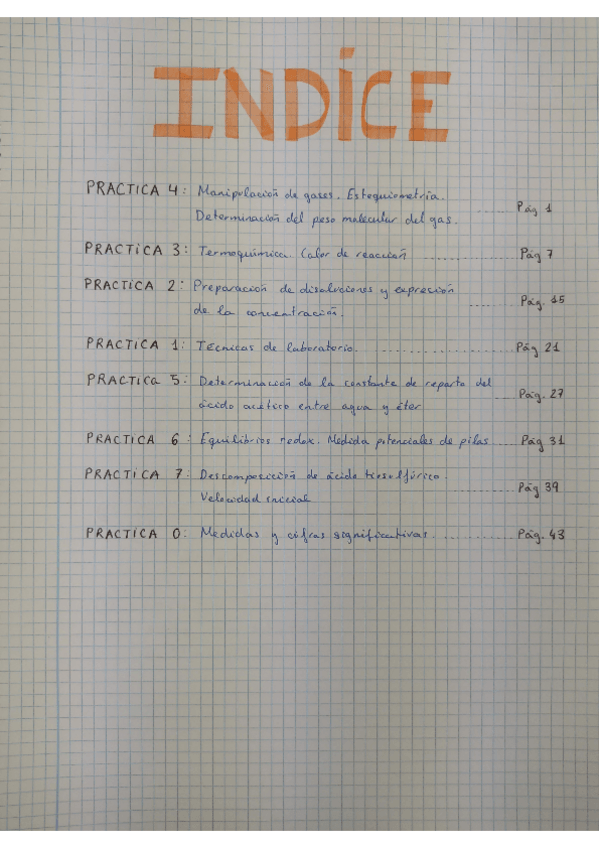 INDÍCE
PRACTICA 4: Manipulación de gases. Estequiometría.
Determinación del peso molecular del gas. ........ Pág 1
PRACTICA 3: Termoquímica. Calor de reacción ........ Pág 7
PRACTICA 2: Preparación de disoluciones y expresión
de la concentración. ........ Pág. 15
PRACTICA 1: Técnicas de laboratorio. ........ Pág 21
PRACTICA 5: Determinación de la constante de reparto del
ácido acético entre agua y éter ........ Pág. 27
PRACTICA 6: Equilibrios redox. Medida potenciales de pilas ... Pág 31
PRACTICA 7: Descomposición de ácido tiosulfúrico.
Velocidad inicial ........ Pág 39
PRACTICA 0: Medidas y cifras significativas. ........ Pág. 43